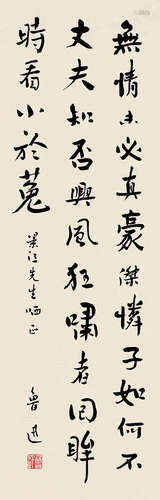 無情未必真豪傑憐子如何不
丈夫知否興風狂嘯者回眸
時看小於菟
先生哂正
魯迅